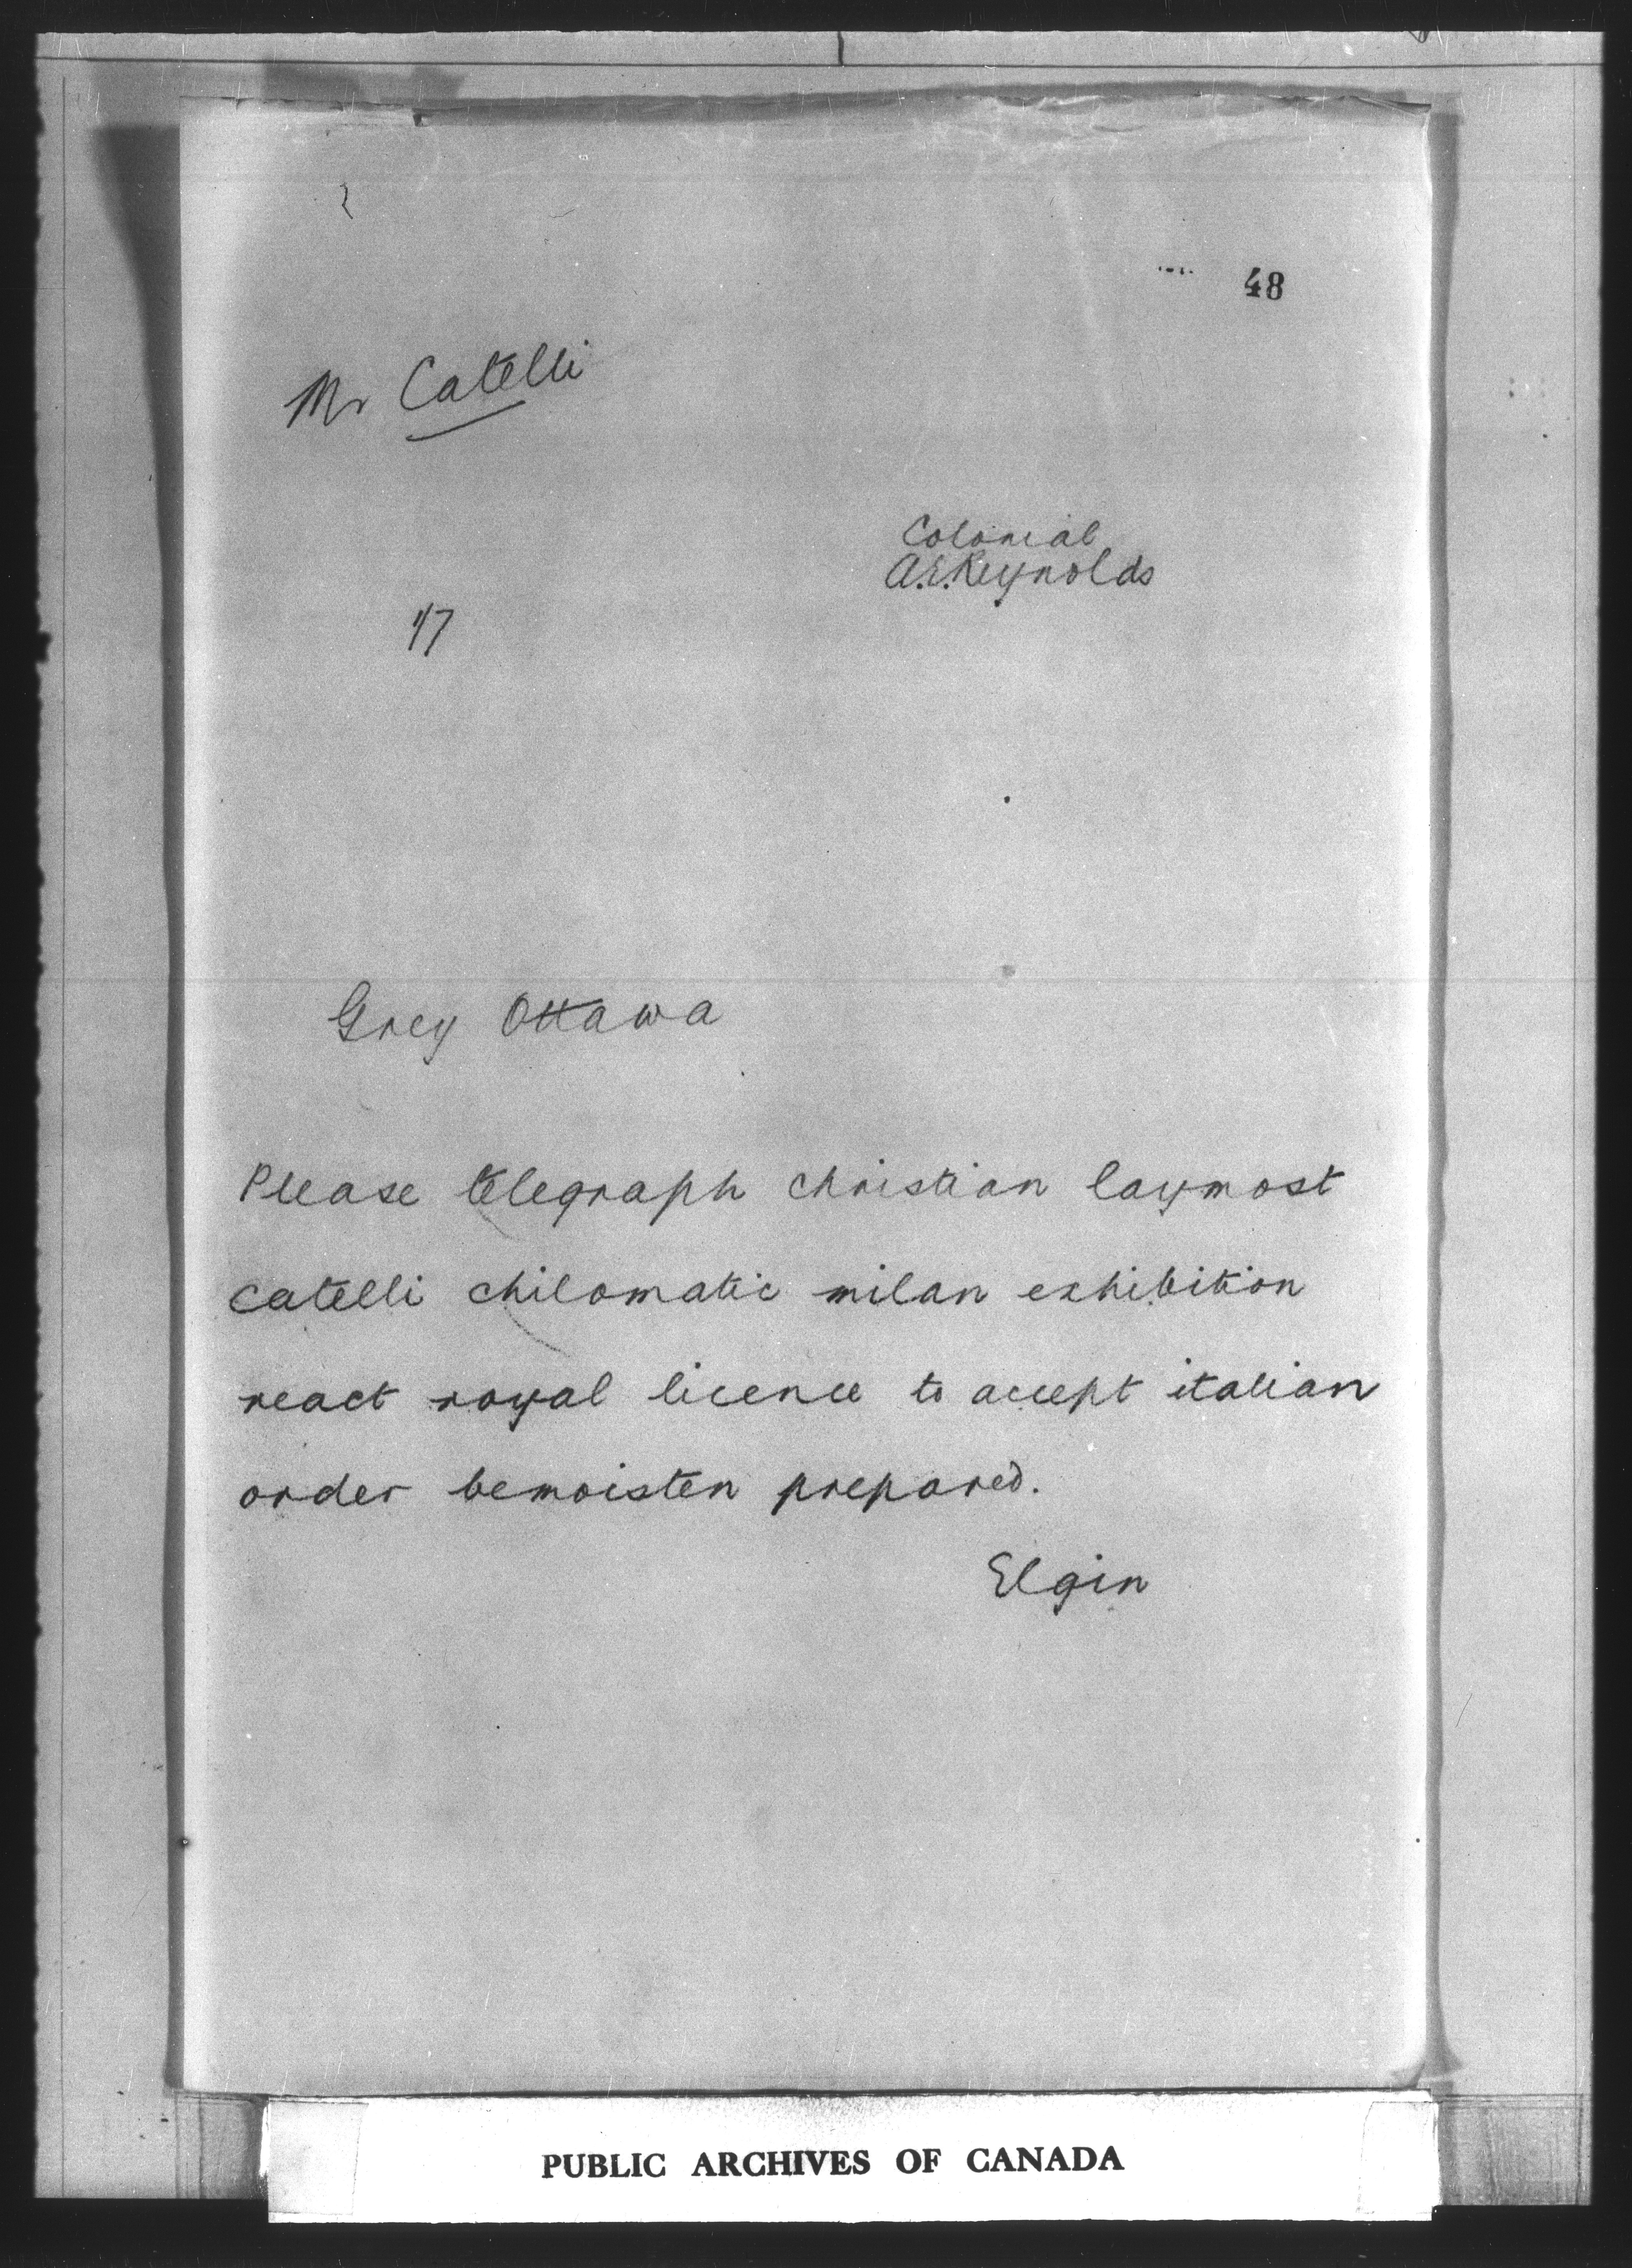 48
Mr Catelli
Colonial
A.E.Reynolds
17
Grey Ottawa
Please telegraph christian laymost
catelli chilomatic milan exhibition
react royal licence to accept italian
order bemoisten prepared.
Elgin
PUBLIC ARCHIVES OF CANADA